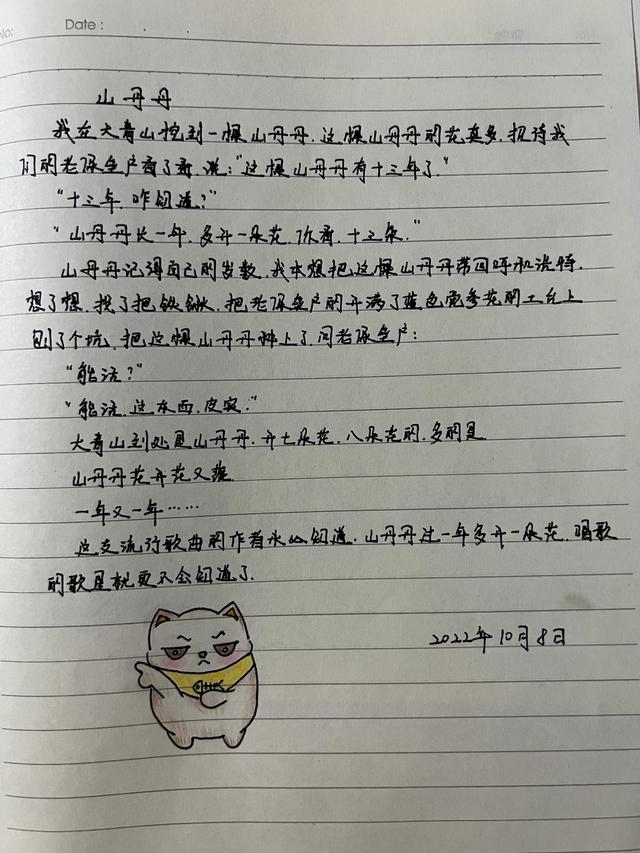 No:
Date :
山丹丹
我在大青山挖到一棵山丹丹.这棵山丹丹的花真多.招待我
们的老保垒户看了看,说:"这棵山丹丹有十三年了."
"十三年,咋知道?"
"山丹丹长一年,多开一朵花.你看,十三朵."
山丹丹记得自己的岁数.我本想把这棵山丹丹带回呼和浩特.
想了想,找了把铁锹,把老保垒户的开满了蓝色党参花的土台上
刨了个坑,把这棵山丹丹种上了.问老保垒户:
"能活?"
"能活.这东西,皮实."
大青山到处是山丹丹.开七朵花,八朵花的.多的是.
山丹丹花开花又落
一年又一年……
这支流行歌曲的作者未必知道.山丹丹过一年多开一朵花.唱歌
的歌星就更不会知道了.
2022年10月8日